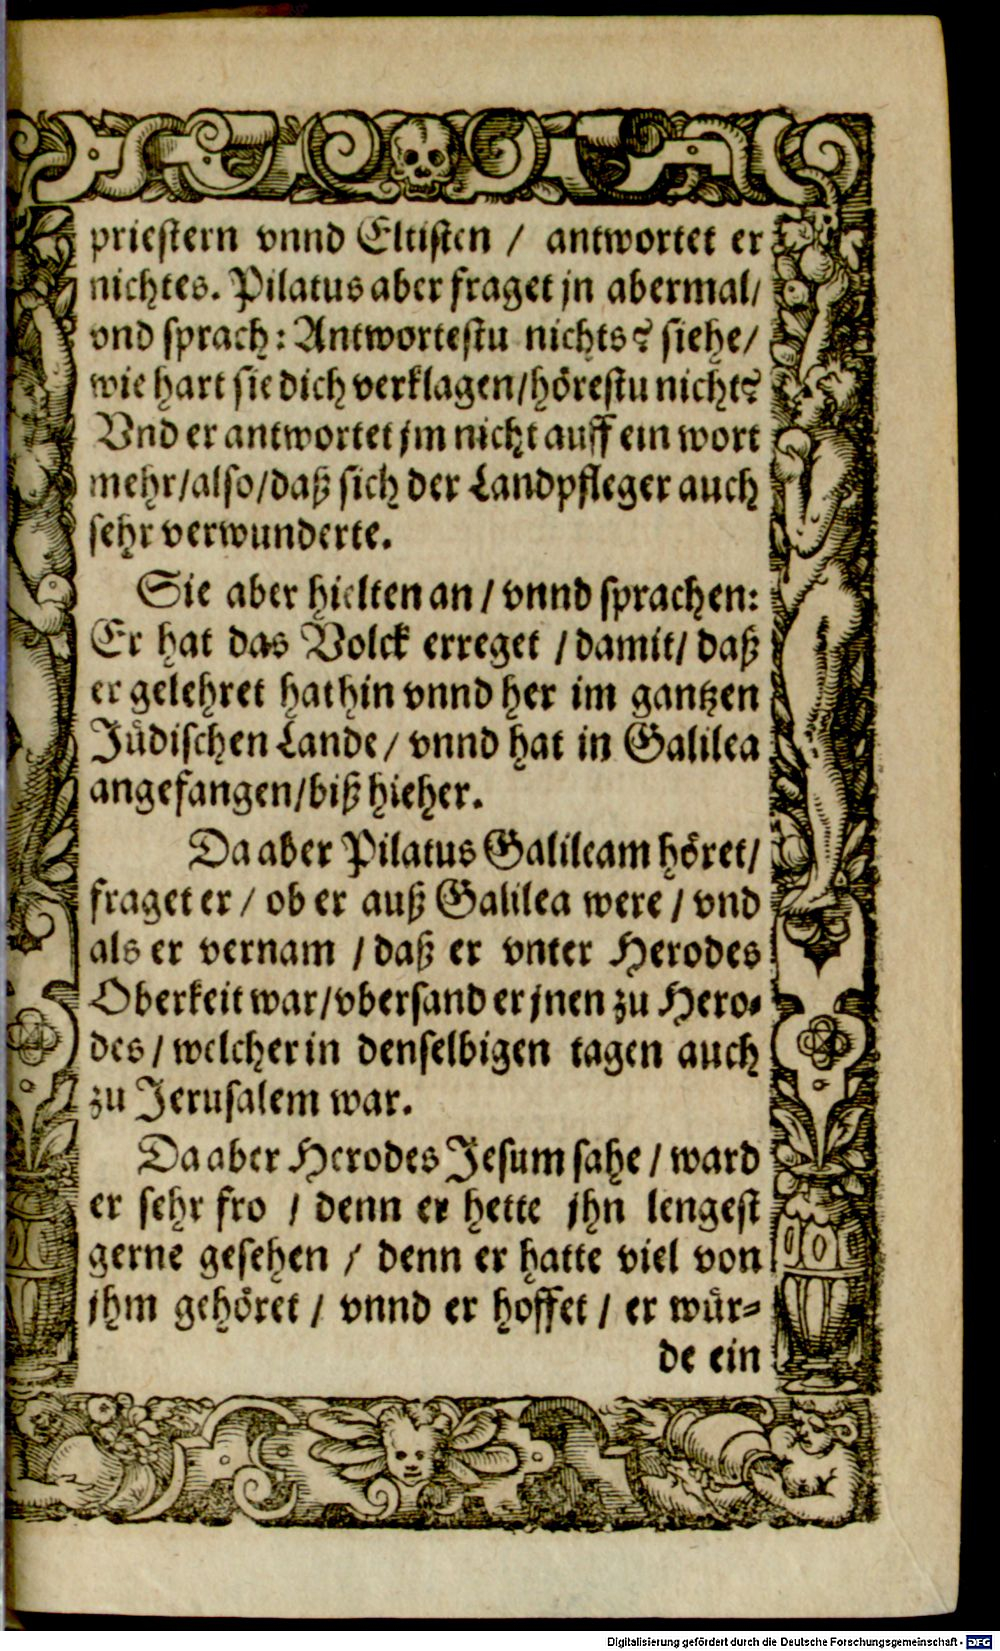 priestern vnnd Eltisten / antwortet er
nichtes. Pilatus aber fraget jn abermal/
vnd sprach: Antwortestu nichts? siehe/
wie hart sie dich verklagen/hörestu nicht?
Vnd er antwortet jm nicht auff ein wort
mehr/also/daß sich der Landpfleger auch
sehr verwunderte.
Sie aber hielten an / vnnd sprachen:
Er hat das Volck erreget / damit/ daß
er gelehret hat hin vnnd her im gantzen
Jüdischen Lande/ vnnd hat in Galilea
angefangen/biß hieher.
Da aber Pilatus Galileam höret/
fraget er / ob er auß Galilea were / vnd
als er vernam / daß er vnter Herodes
Oberkeit war/vbersand er jnen zu Hero-
des / welcher in denselbigen tagen auch
zu Jerusalem war.
Da aber Herodes Jesum sahe / ward
er sehr fro / denn er hette jhn lengest
gerne gesehen / denn er hatte viel von
jhm gehöret / vnnd er hoffet / er wür-
de ein
Digitalisierung gefördert durch die Deutsche Forschungsgemeinschaft - DFG